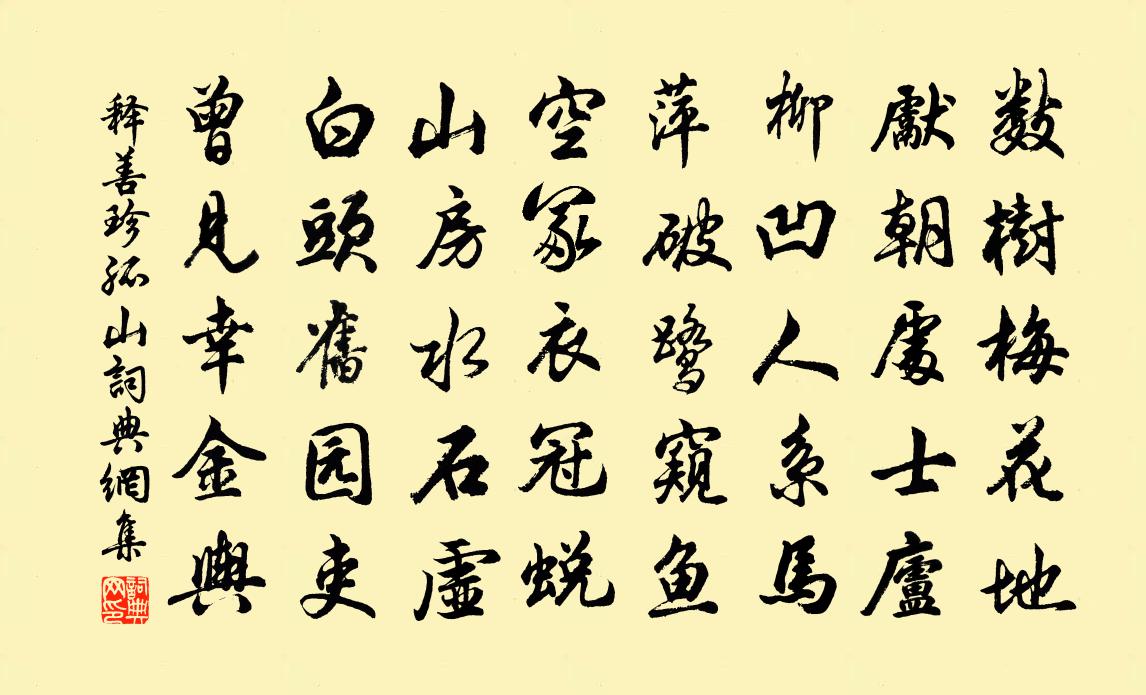 数樹梅花地
獻朝處士廬
柳凹人系馬
萍破鷺窺鱼
空冢衣冠蜕
山房水石虛
白頭舊园吏
曾見幸金輿
释善珍孤山詞典網集
詞典网印